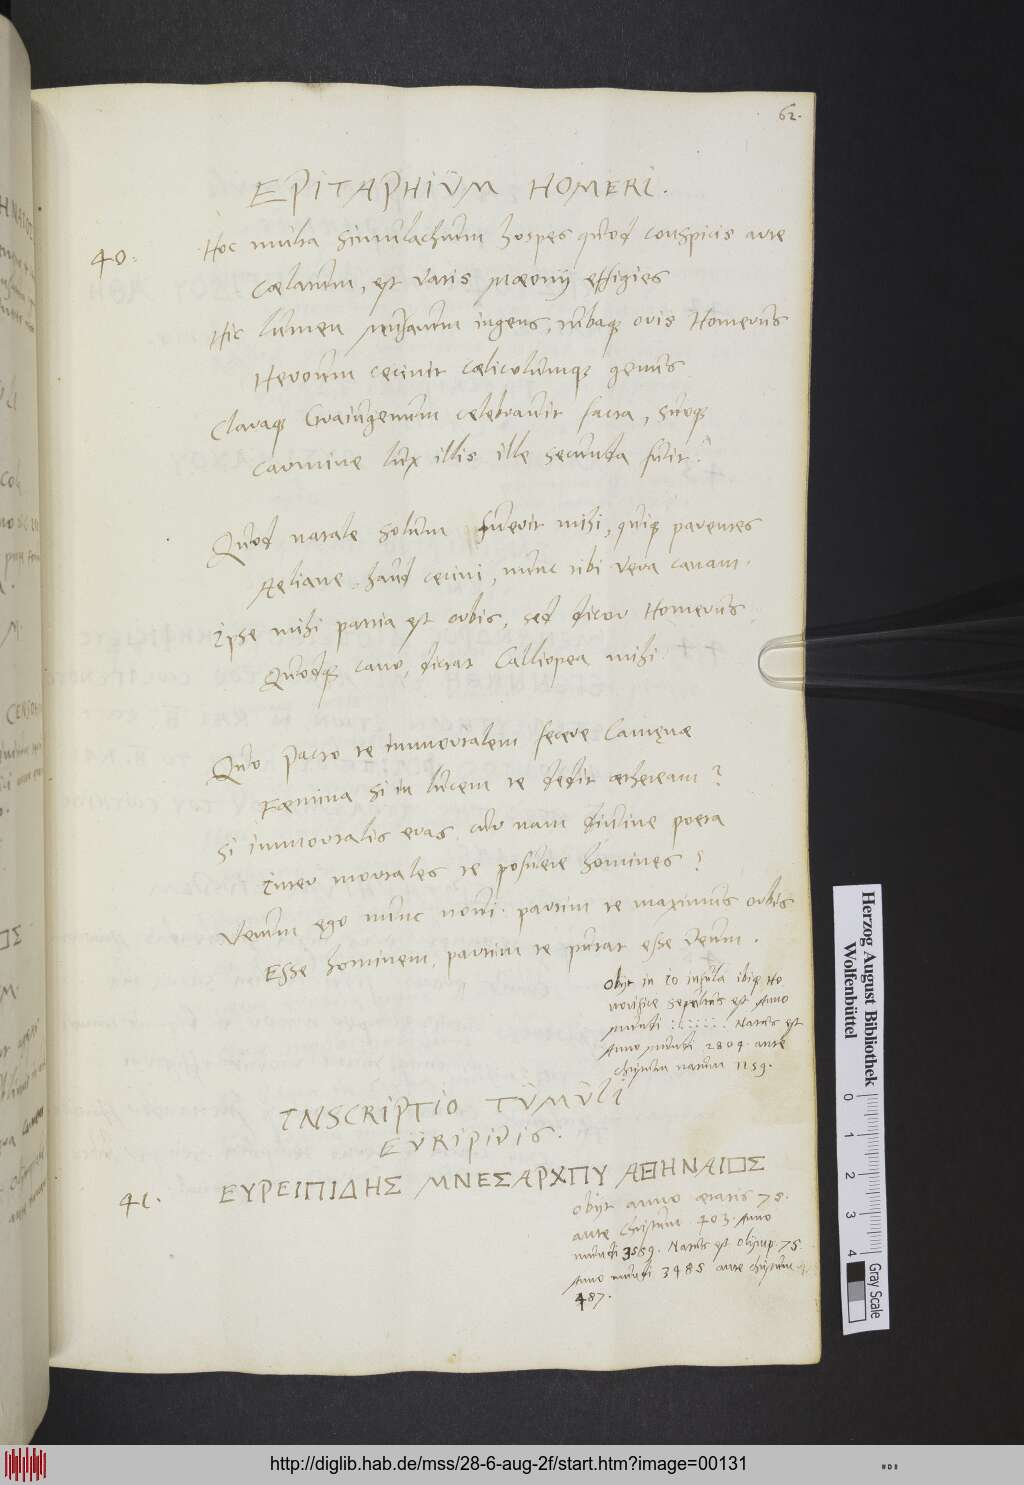 62.
EPITAPHIUM HOMERI.
40. Hoc multa simulachrum hospes quod conspicis arte
Cælatum, est vatis Mæonij effigies
Hic lumen ingens, tubaque oris Homerus
Heroum cecinit cælicolumque genus
Claraque Graiugenum celebravit facta, suoque
Carmine lux illis ille secunda fuit.
Quod natale solum fuerit mihi, quique parentes
Aeliane, haud cecini, nunc tibi vera canam.
Ipse mihi patria est orbis, sed dicor Homerus
Quodque cano, dictat Calliopea mihi.
Quo pacto te immortalem fecere Camęnæ
Fæmina si in lucem te dedit ætheream?
Si immortalis eras, cur nam divine poeta
Inter mortales te posuere homines?
Verum ego nunc novi. partim te maximus orbis
Esse hominem, partim te putat esse deum.
Obijt in Io insula ibique Ho
norifice sepultus est Anno
mundi : : : : : : . Natus est
Anno mundi 2809. ante
Christum natum 1159.
INSCRIPTIO TUMULI
EURIPIDIS.
41. ΕΥΡΕΙΠΙΔΗΣ ΜΝΕΣΑΡΧΠΥ ΑΘΗΝΑΙΟΣ
Obijt anno ætatis 75.
ante Christum 403. Anno
mundi 3559. Natus est Olymp. 75.
Anno mundi 3485 ante Christum
487.
Herzog August Bibliothek
Wolfenbüttel
0 1 2 3 4
Gray Scale
http://diglib.hab.de/mss/28-6-aug-2f/start.htm?image=00131